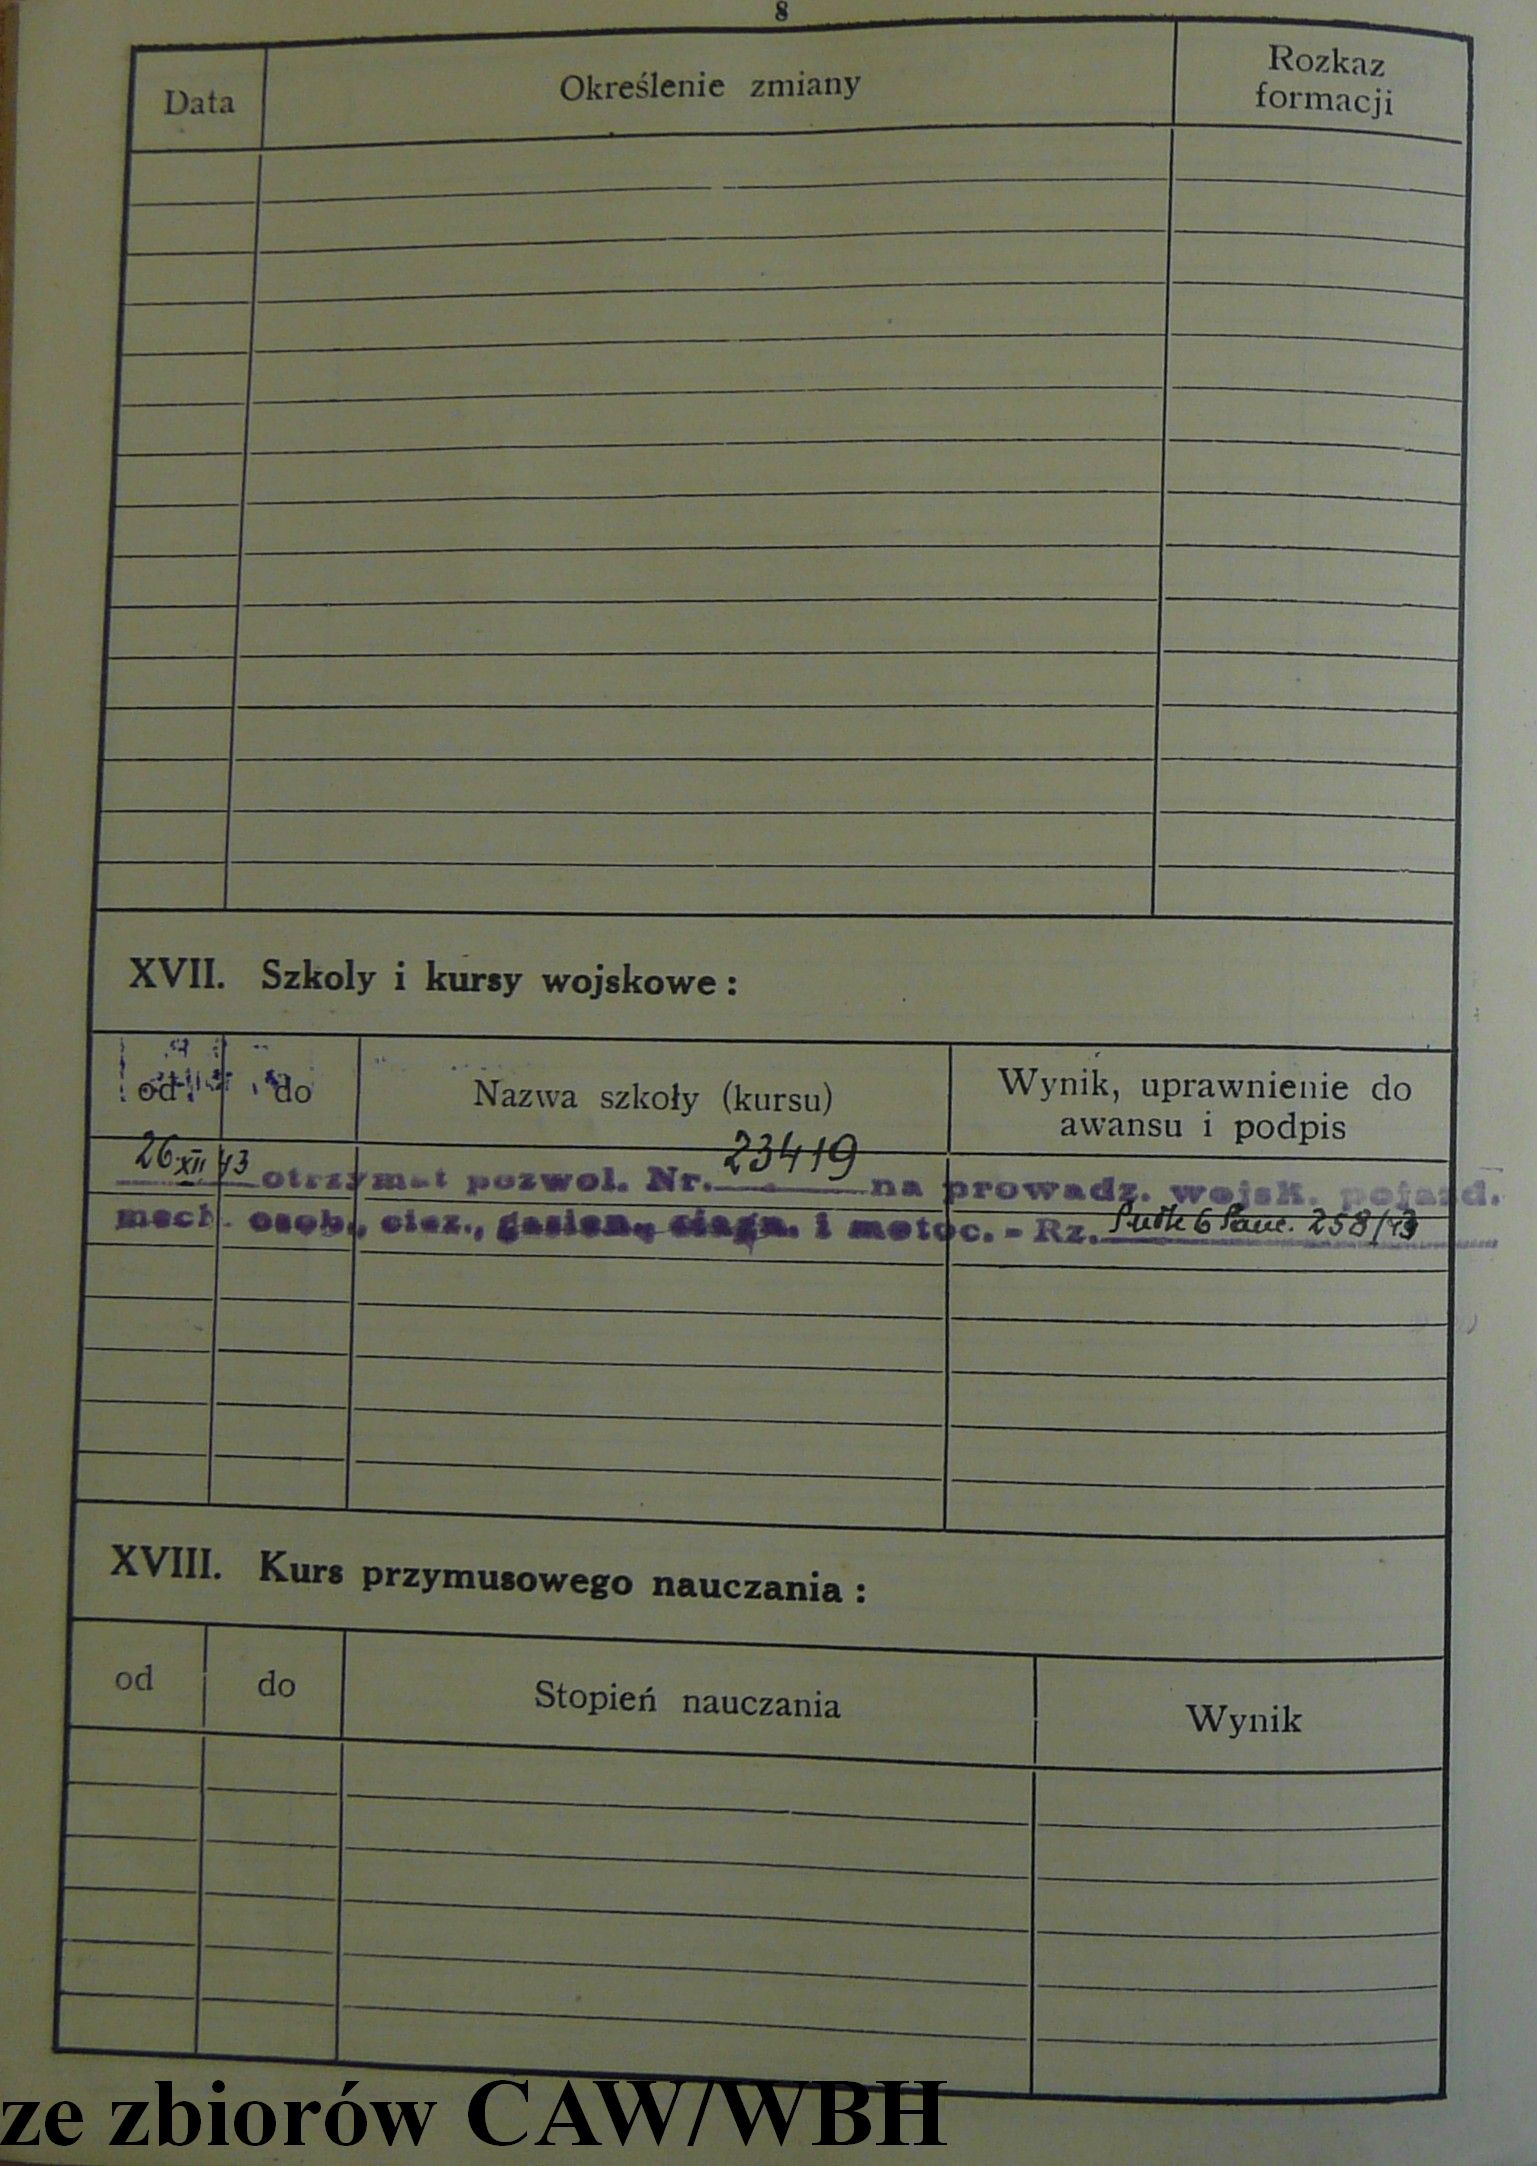 8
Data Określenie zmiany Rozkaz formacji
XVII. Szkoly i kursy wojskowe:
od do Nazwa szkoły (kursu) Wynik, uprawnienie do awansu i podpis
26 XII 43 otrzymał pozwol. Nr. 23419 na prowadz. wojsk. pojazd.
mech. osob., cież., gasien., ciągn. i motoc. - Rz. 6 Panc. 258/43
XVIII. Kurs przymusowego nauczania:
od do Stopień nauczania Wynik
ze zbiorów CAW/WBH